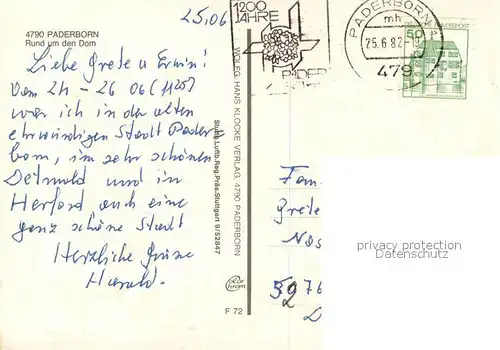 25.06
4790 PADERBORN
Rund um den Dom
Liebe Grete u Erwin!
Vom 24 - 26 06 (1125)
war ich in der alten
ehrwürdigen Stadt Pader
born, im sehr schönen
Detmold und in
Herford auch eine
ganz schöne Stadt
Herzliche Grüsse
Harald.
WOLFG. HANS KLOCKE VERLAG, 4790 PADERBORN
Stuttg. Luftb. Reg. Präs. Stuttgart 9/52847
F 72
1200
JAHRE
PADER
PADERBORN
mh
25.6.82-19
479
50
Fam
Grete
privacy protection
Datenschutz